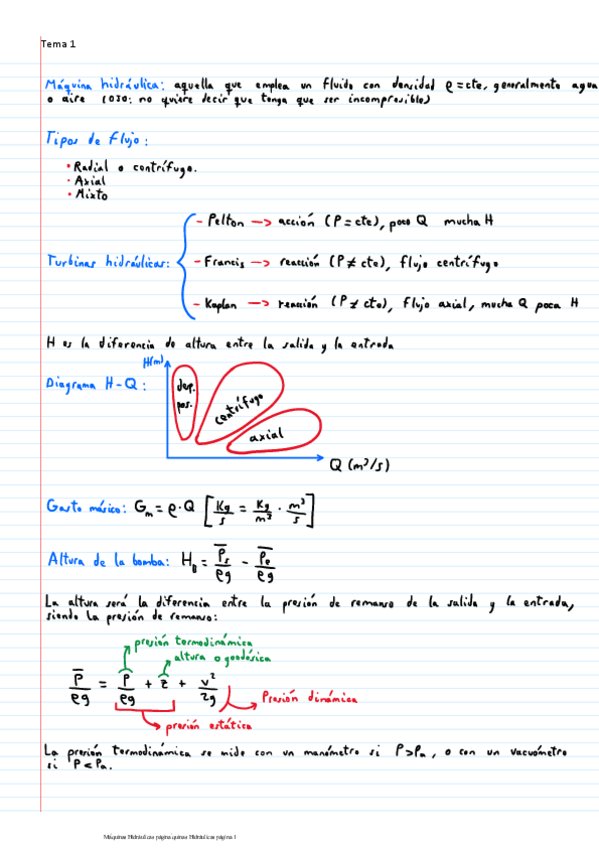 Tema 1
Máquina hidráulica: aquella que emplea un fluido con densidad ρ=cte, generalmente agua
o aire (OJO: no quiere decir que tenga que ser incompresible)
Tipos de flujo:
• Radial o centrífugo.
• Axial
• Mixto
Turbinas hidráulicas:
- Pelton → acción (P = cte), poco Q mucha H
- Francis → reacción (P ≠ cte), flujo centrífugo
- Kaplan → reacción (P ≠ cte), flujo axial, mucha Q poca H
H es la diferencia de altura entre la salida y la entrada
Diagrama H-Q:
H(m)
desp. pos.
centrífugo
axial
Q (m³/s)
Gasto másico: G_m = ρ·Q [Kg/s = Kg/m³ · m³/s]
Altura de la bomba: H_B = P̅s/ρg - P̅e/ρg
La altura será la diferencia entre la presión de remanso de la salida y la entrada,
siendo la presión de remanso:
presión termodinámica
altura o geodésica
P̅/ρg = P/ρg + z + v²/2g
Presión dinámica
presión estática
La presión termodinámica se mide con un manómetro si P>Pa, o con un vacuómetro
si P<Pa.
Máquinas Hidráulicas página quinas Hidráulicas página 1